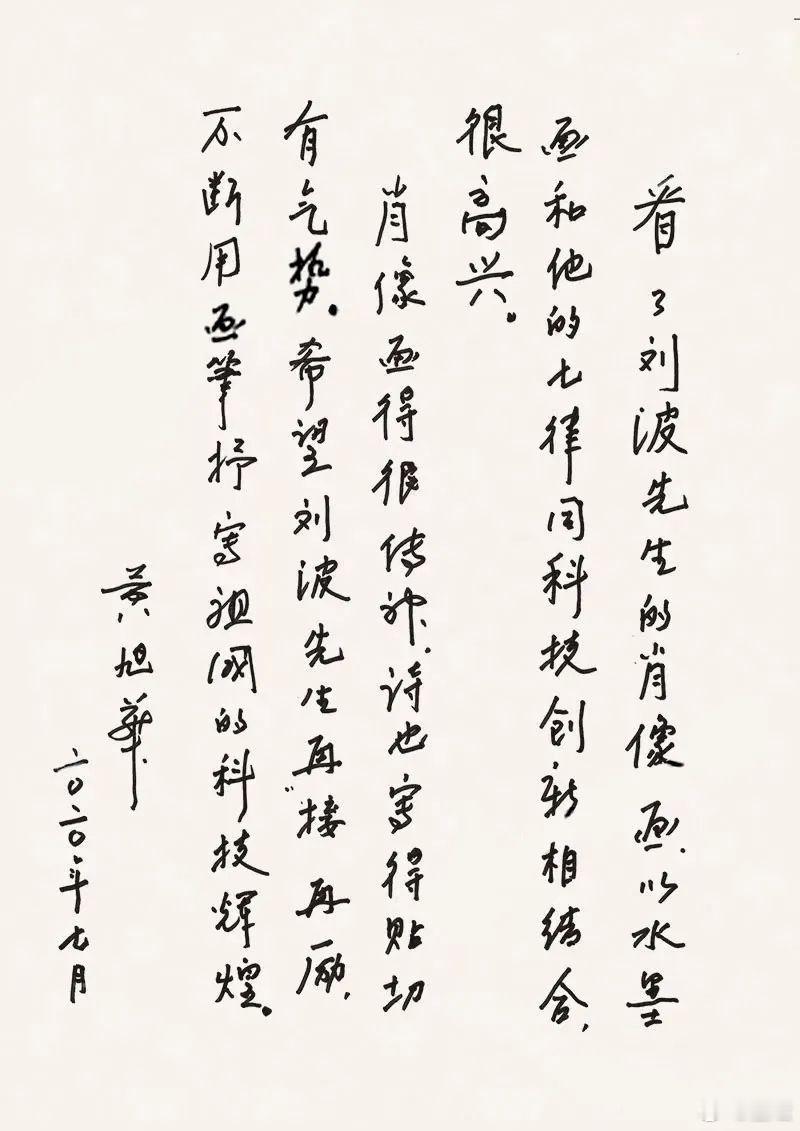 看了刘波先生的肖像画，以水墨
画和他的七律同科技创新相结合，
很高兴。
肖像画得很传神，诗也写得贴切
有气势。希望刘波先生再接再励，
不断用画笔抒写祖国的科技辉煌。
黄旭华
二〇二〇年七月